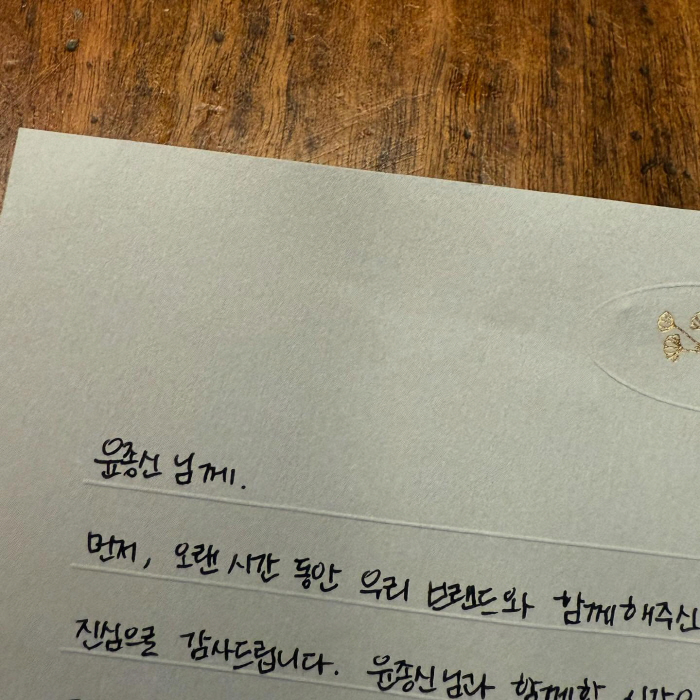 윤종신 님께.
먼저, 오랜 시간 동안 우리 브랜드와 함께해주신
진심으로 감사드립니다. 윤종신님과 함께한